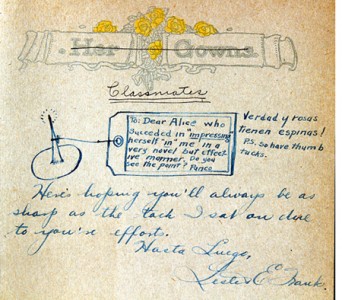 Her Gowns
Classmates
To: Dear Alice who
succeded in "impressing
herself "in" me in a
very novel but effect-
ive manner. Do you
see the point? Prince
Verdad y rosas
tienen espinas!
P.S. So have thumb
tacks.
Here's hoping you'll always be as
sharp as the tack I sat on due
to you're efforts.
Hasta Luego,
Lester E.